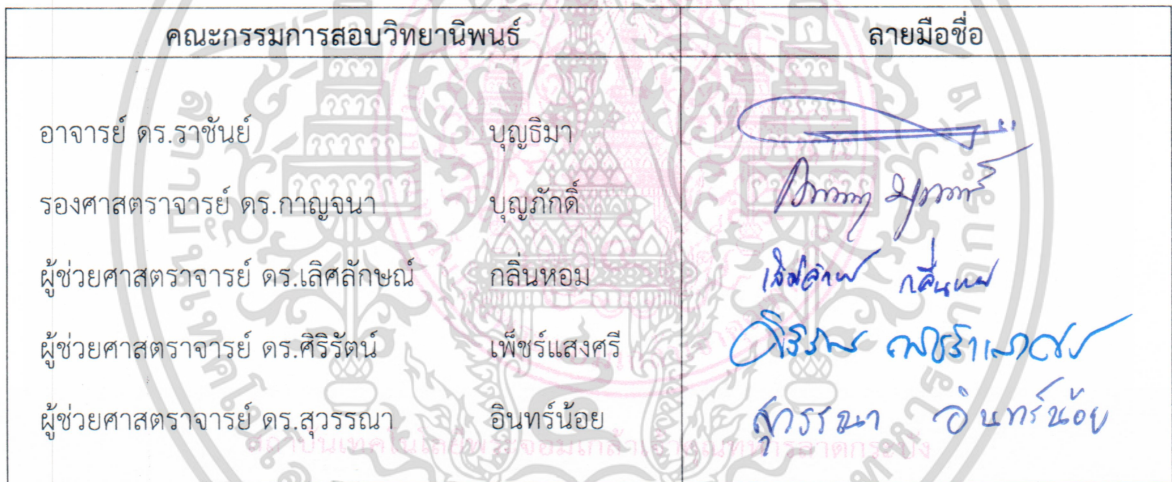 คณะกรรมการสอบวิทยานิพนธ์ ลายมือชื่อ
อาจารย์ ดร.ราชันย์ บุญธิมา
รองศาสตราจารย์ ดร.กาญจนา บุญภักดิ์
ผู้ช่วยศาสตราจารย์ ดร.เลิศลักษณ์ กลิ่นหอม เลิศลักษณ์ กลิ่นหอม
ผู้ช่วยศาสตราจารย์ ดร.ศิริรัตน์ เพ็ชร์แสงศรี ศิริรัตน์ เพ็ชร์แสงศรี
ผู้ช่วยศาสตราจารย์ ดร.สุวรรณา อินทร์น้อย สุวรรณา อินทร์น้อย